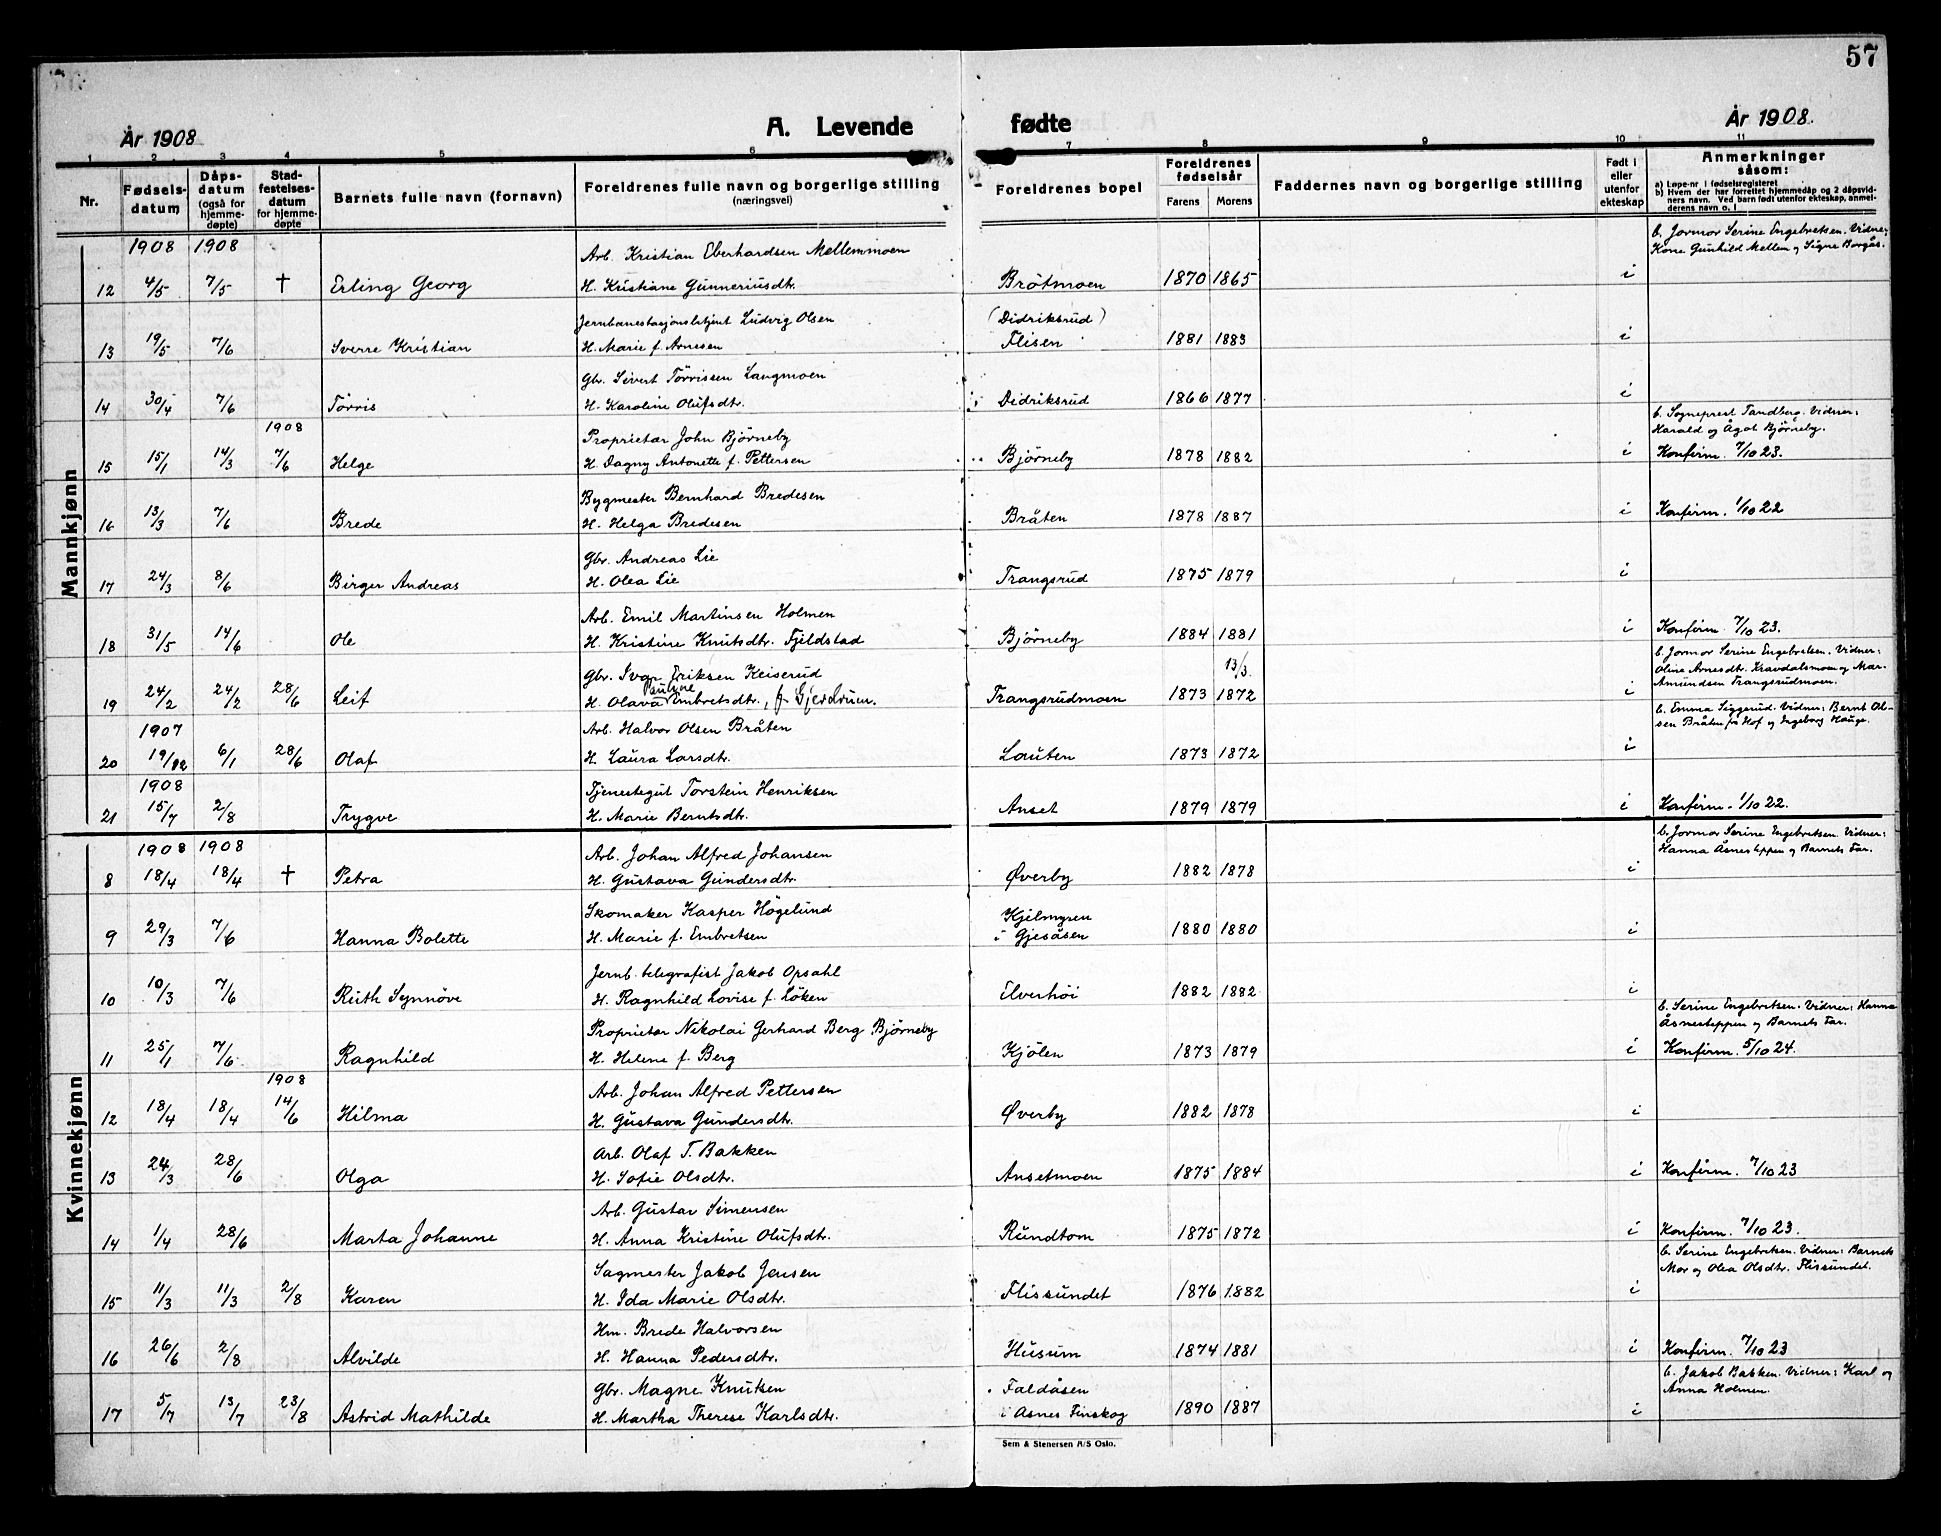 57
År 1908
A. Levende fødte
År 1908.
1 2 3 4 5 6 7 8 9 10 11
Nr.
Fødsels-
datum
Dåps-
datum
(også for
hjemme-
døpte)
Stad-
festelses-
datum
for hjemme-
døpte
Barnets fulle navn (fornavn)
Foreldrenes fulle navn og borgerlige stilling
(næringsvei)
Foreldrenes bopel
Foreldrenes
fødselsår
Farens Morens
Faddernes navn og borgerlige stilling
Født i
eller
utenfor
ekteskap
Anmerkninger
såsom:
a) Løpe-nr i fødselsregisteret
b) Hvem der har forrettet hjemmedåp og 2 dåpsvid-
ners navn. Ved barn født utenfor ekteskap, anmel-
derens navn o. l
Mannkjønn
1908 1908 Arb. Kristian Eberhardsen Mellemmoen b. Jormor Serine Engebretsen. Vidner:
Kone Gunhild Mellem og Signe Borgås.
12 4/5 7/5 † Erling Georg H. Kristiane Gunneriusdtr. Bråtmoen 1870 1865 i
Jernbanestasjonsbetjent Ludvig Olsen (Didriksrud)
13 19/5 7/6 Sverre Kristian H. Marie f. Arnesen Flisen 1881 1883 i
Gbr. Sivert Törrissen Langmoen
14 30/4 7/6 Törris H. Karoline Olufsdtr. Didriksrud 1866 1877 i
1908 Proprietær John Bjørneby b. Sogneprest Tandberg. Vidner:
Harald og Ågot Bjørneby.
15 15/1 14/3 7/6 Helge H. Dagny Antonette f. Pettersen Bjørneby 1878 1882 i Konfirm. 7/10 23.
Bygmester Bernhard Bredesen
16 13/3 7/6 Brede H. Helga Bredesen Bråten 1878 1887 i Konfirm. 1/10 22
Gbr. Andreas Lie
17 24/3 8/6 Birger Andreas H. Olea Lie Trangsrud 1875 1879 i
Arb. Emil Martinsen Holmen
18 31/5 14/6 Ole H. Kristine Knutsdtr. Fjeldstad Bjørneby 1884 1881 i Konfirm. 7/10 23.
Gbr. Ivar Eriksen Keiserud 13/3. b. Jormor Serine Engebretsen. Vidner:
Oline Arnesdtr. Kravdalsmoen og Mar.
Amundsen Trangsrudmoen.
19 24/2 24/2 28/6 Leif H. Olava Pauline Embretsdtr., f. Gjerdrum. Trangsrudmoen 1873 1872 i
1907 Arb. Halvor Olsen Bråten b. Emma Siggerud. Vidner: Bernt Ol-
sen Bråten fra Hof og Ingeborg Hauge.
20 19/12 6/1 28/6 Olaf H. Laura Larsdtr. Lauten 1873 1872 i
1908 Tjenestegut Torstein Henriksen
21 15/7 2/8 Trygve H. Marie Berntsdtr. Anset 1879 1879 i Konfirm. 1/10 22.
Kvinnekjønn
1908 1908 Arb. Johan Alfred Johansen b. Jormor Serine Engebretsen. Vidner:
Hanna Åsnesteppen og Barnets Far.
8 18/4 18/4 † Petra H. Gustava Gundersdtr. Øverby 1882 1878 i
Skomaker Kasper Högelund Kjelmyren
9 29/3 7/6 Hanna Bolette H. Marie f. Embretsen i Gjesåsen 1880 1880 i
Jernb. telegrafist Jakob Opsahl
10 10/3 7/6 Ruth Synnöve H. Ragnhild Lovise f. Löken Elverhöi 1882 1882 i
Proprietær Nikolai Gerhard Berg Bjørneby b. Serine Engebretsen. Vidner: Hanna
Åsnesteppen og Barnets Far.
11 25/1 7/6 Ragnhild H. Helene f. Berg Kjölen 1873 1879 i Konfirm. 5/10 24.
1908 Arb. Johan Alfred Pettersen
12 18/4 18/4 14/6 Hilma H. Gustava Gundersdtr. Øverby 1882 1878 i
Arb. Olaf T. Bakken
13 24/3 28/6 Olga H. Sofie Olsdtr. Ansetmoen 1875 1884 i Konfirm. 7/10 23
Arb. Gustav Simensen
14 1/4 28/6 Marta Johanne H. Anna Kristine Olufsdtr. Rundtom 1875 1872 i Konfirm. 7/10 23.
Sagmester Jakob Jensen b. Serine Engebretsen. Vidner: Barnets
Mor og Olea Olsdtr. Flissundet.
15 11/3 11/3 2/8 Karen H. Ida Marie Olsdtr. Flissundet 1876 1882 i
Hm. Brede Halvorsen
16 26/6 2/8 Alvilde H. Hanna Pedersdtr. Husum 1874 1881 i Konfirm. 7/10 23
Gbr. Magne Knutsen Faldåsen b. Jakob Bakken. Vidner: Karl og
Anna Holmen.
17 5/7 13/7 23/8 Astrid Mathilde H. Martha Therese Karlsdtr. i Åsnes Finskog 1890 1887 i
Sem & Stenersen A/S Oslo.